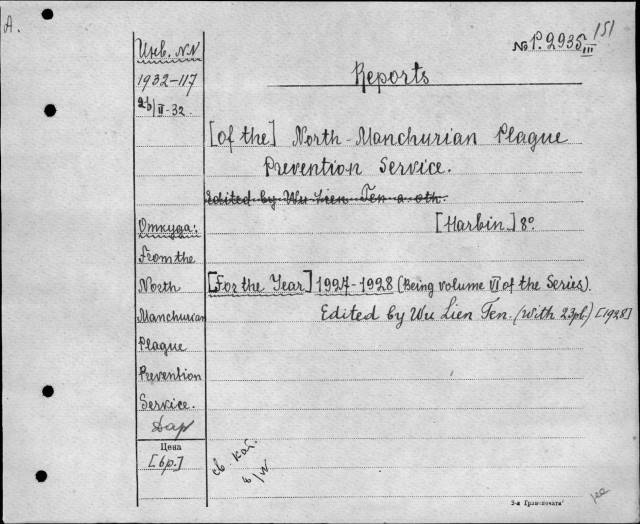 A.
№ P.2935/III
151
Инв. NN
1932-117
26/II-32.
Reports
[of the] North-Manchurian Plague
Prevention Service.
Edited by Wu Lien Ten a oth.
[Harbin.] 8°.
Откуда:
From the
North
Manchurian
Plague
Prevention
Service.
Дар
[For the Year] 1927-1928 (Being volume VI of the Series).
Edited by Wu Lien Ten. (with 23pl.) [1928]
Цена
[6p.]
св. кат.